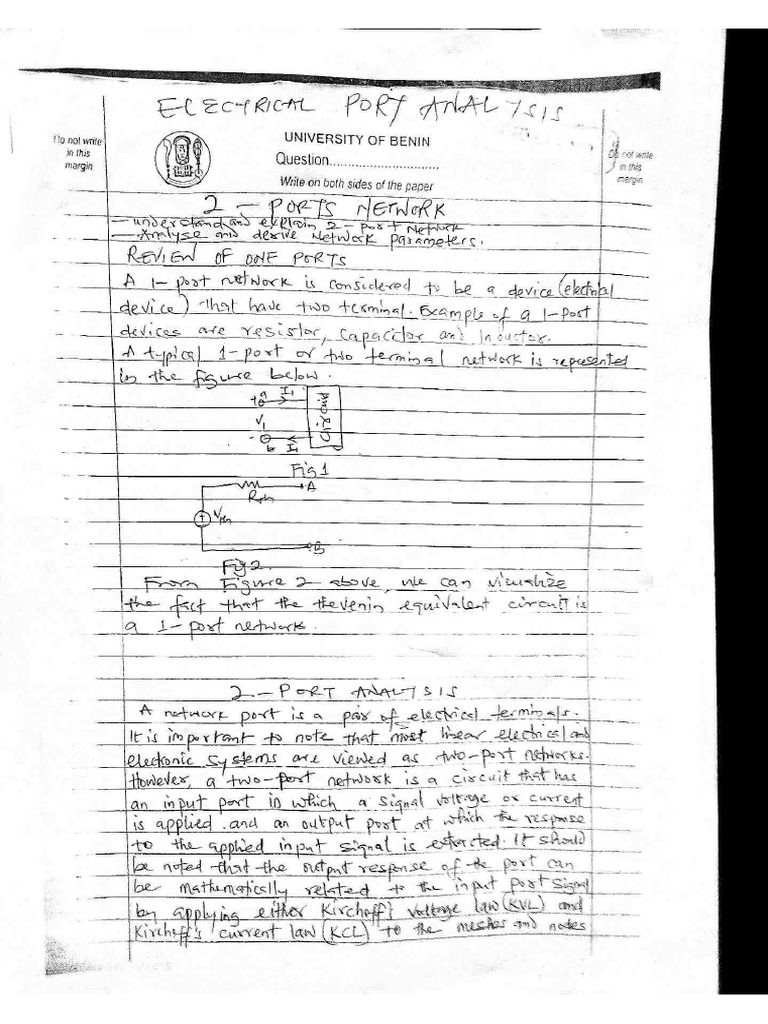 ELECTRICAL PORT ANALYSIS
Do not write
in this
margin
UNIVERSITY OF BENIN
Question
Write on both sides of the paper
Do not write
in this
margin
2 - PORTS NETWORK
- understand and explain 2-port Network
- Analyse and derive Network parameters.
REVIEW OF ONE PORTS
A 1-port network is considered to be a device (electrical
device) that have two terminal. Example of a 1-port
devices are resistor, capacitor and Inductor.
A typical 1-port or two terminal network is represented
in the figure below.
+ a I1
V1
- b I1
Fig 1
Rth A
+ Vth
B
Fig 2.
From Figure 2 above, we can visualize
the fact that the thevenin equivalent circuit is
a 1-port network.
2 - PORT ANALYSIS
A network port is a pair of electrical terminals.
It is important to note that most linear electrical and
electronic systems are viewed as two-port networks.
However, a two-port network is a circuit that has
an input port in which a signal voltage or current
is applied and an output port at which the response
to the applied input signal is extracted. It should
be noted that the output response of the port can
be mathematically related to the input port signal
by applying either Kirchoff's voltage law (KVL) and
Kirchoff's current law (KCL) to the meshes and nodes